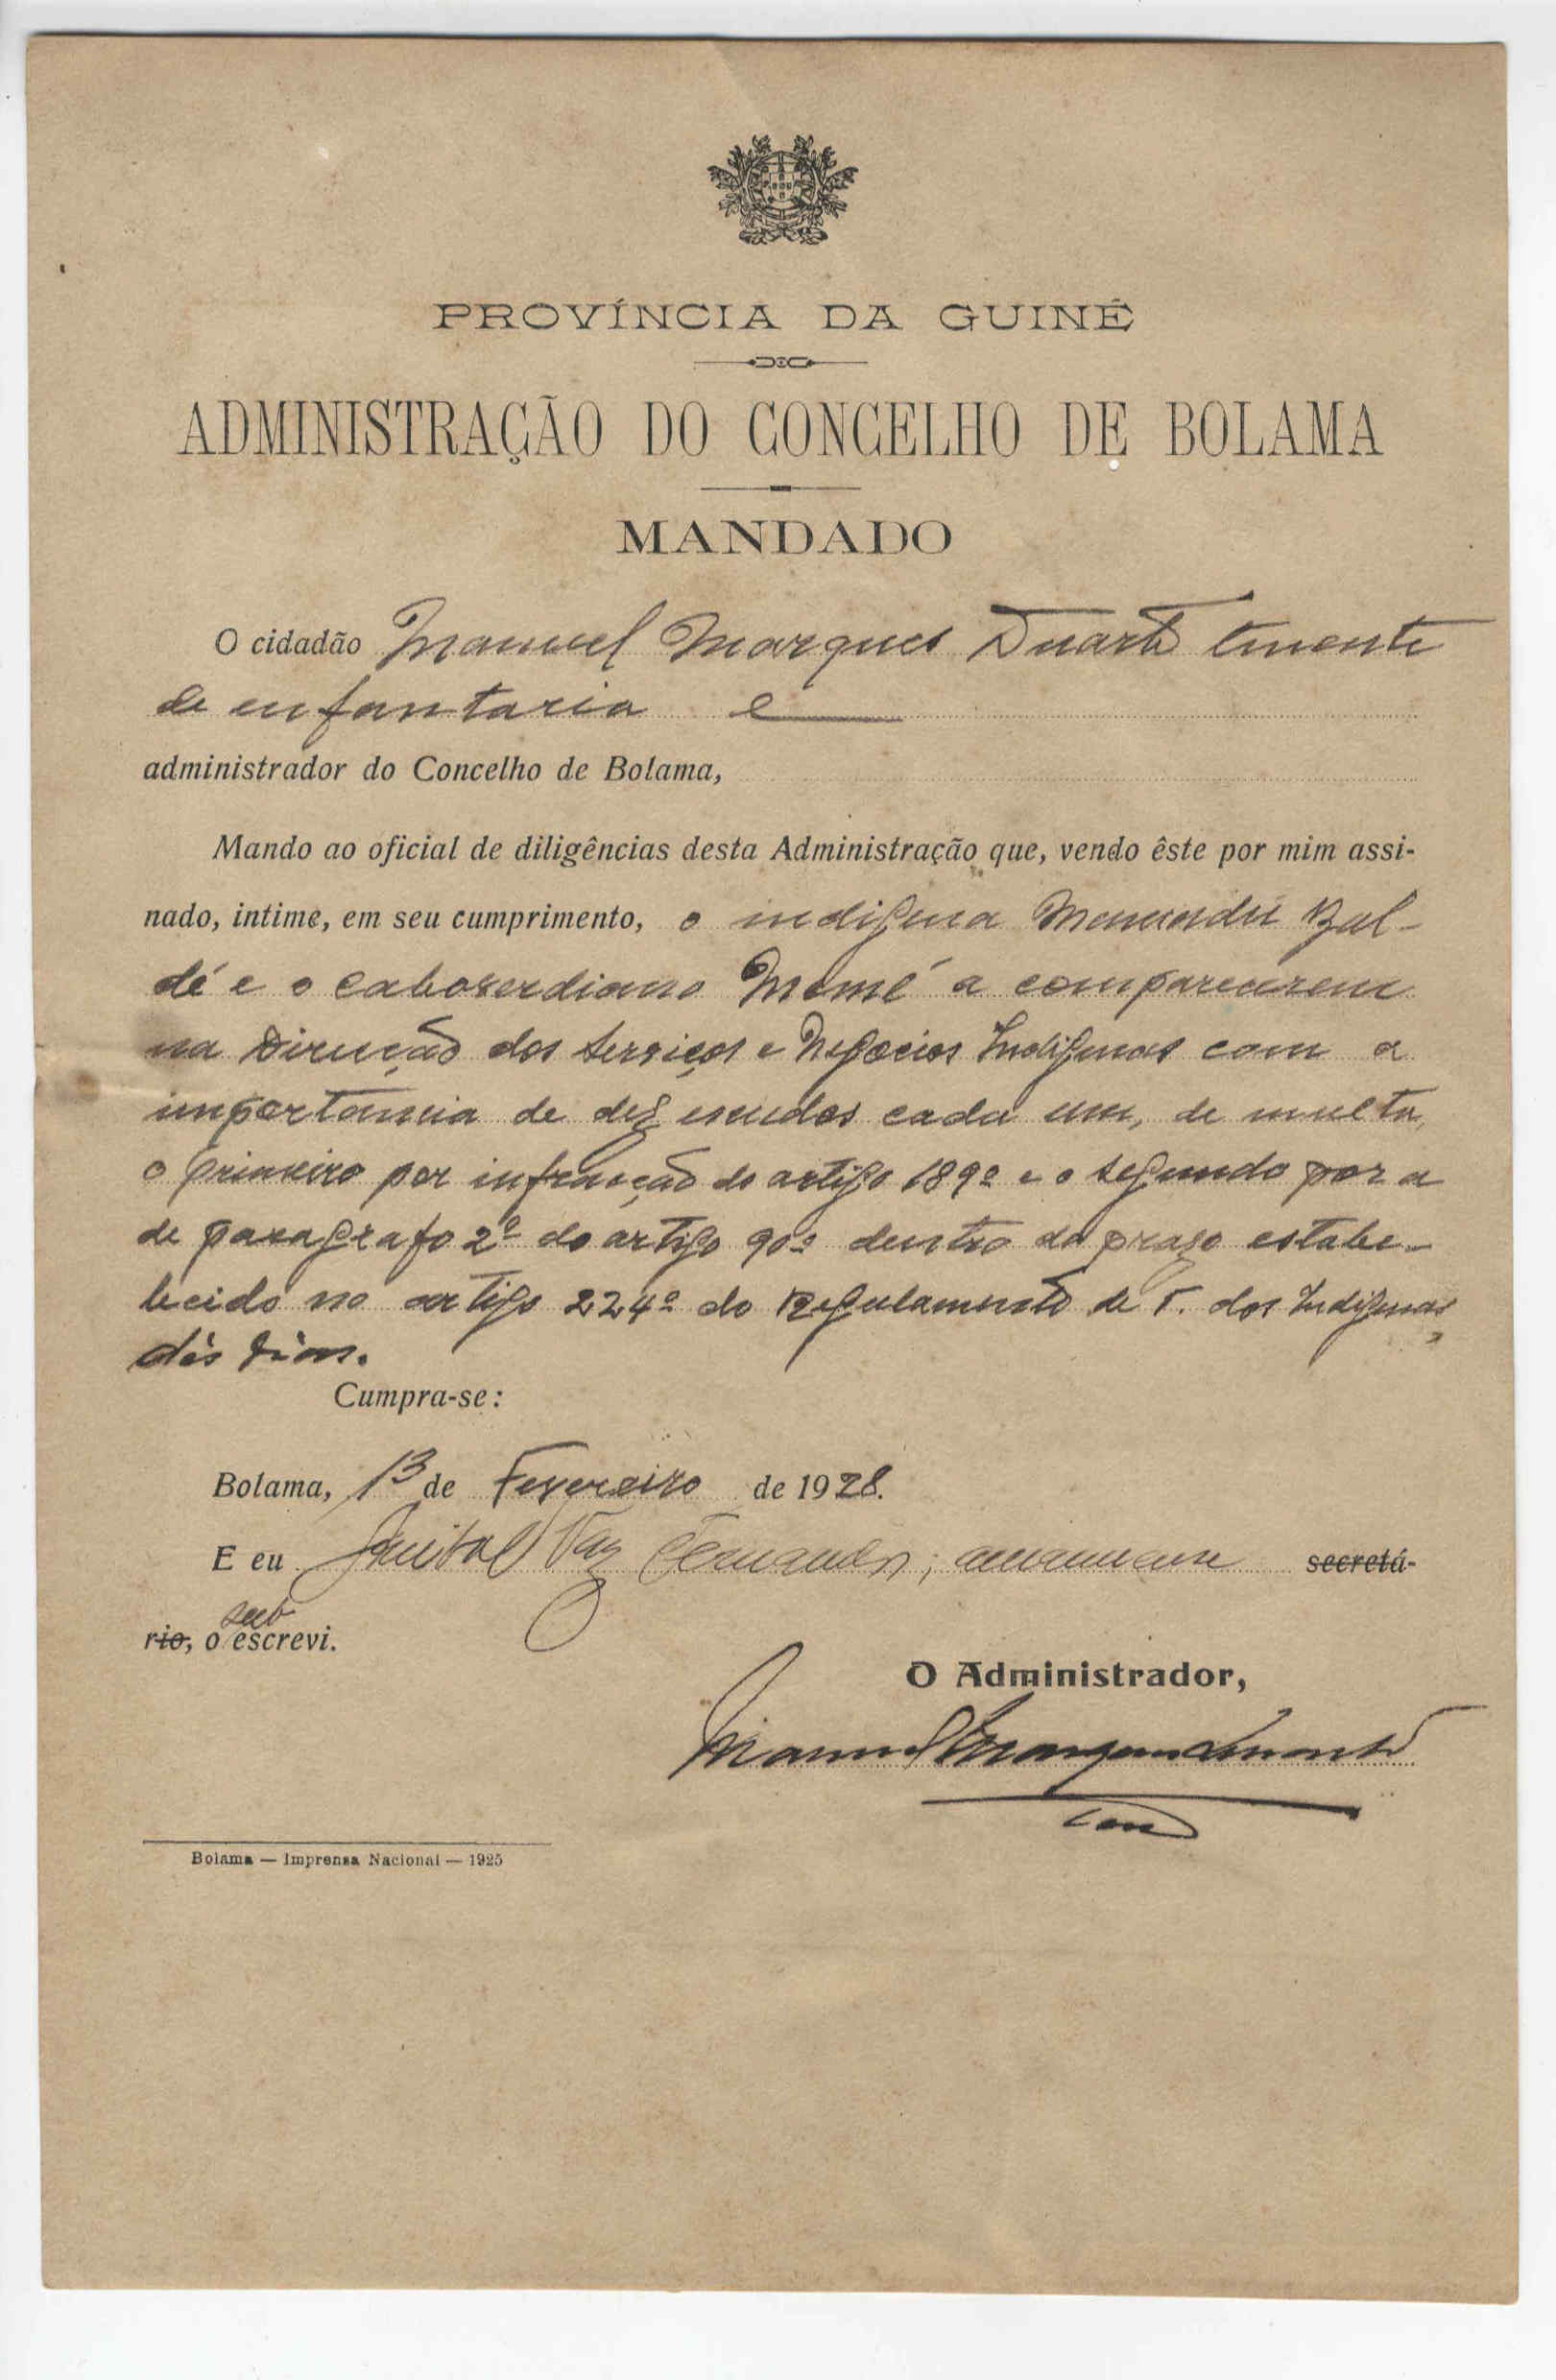 PROVÍNCIA DA GUINÉ
ADMINISTRAÇÃO DO CONCELHO DE BOLAMA
MANDADO
O cidadão Manuel Marques Duarte tenente
de enfantaria e
administrador do Concelho de Bolama,
Mando ao oficial de diligências desta Administração que, vendo êste por mim assi-
nado, intime, em seu cumprimento, o indigena Mamadú Bal-
dé e o caboverdiano Momé a comparecerem
na Direcção dos Serviços e Negocios Indigenas com a
importancia de dez escudos cada um, de multa,
o primeiro por infracção do artigo 189º e o segundo por a
de paragrafo 2º do artigo 90º dentro do prazo estabe-
lecido no artigo 224º do Regulamento de T. dos Indigenas,
dés dias.
Cumpra-se:
Bolama, 13 de Fevereiro de 1928.
E eu Vaz Fernandes, amanuense secretá-
rio, o sub escrevi.
O Administrador,
Manuel Marques Duarte
Ten
Bolama — Imprensa Nacional — 1925